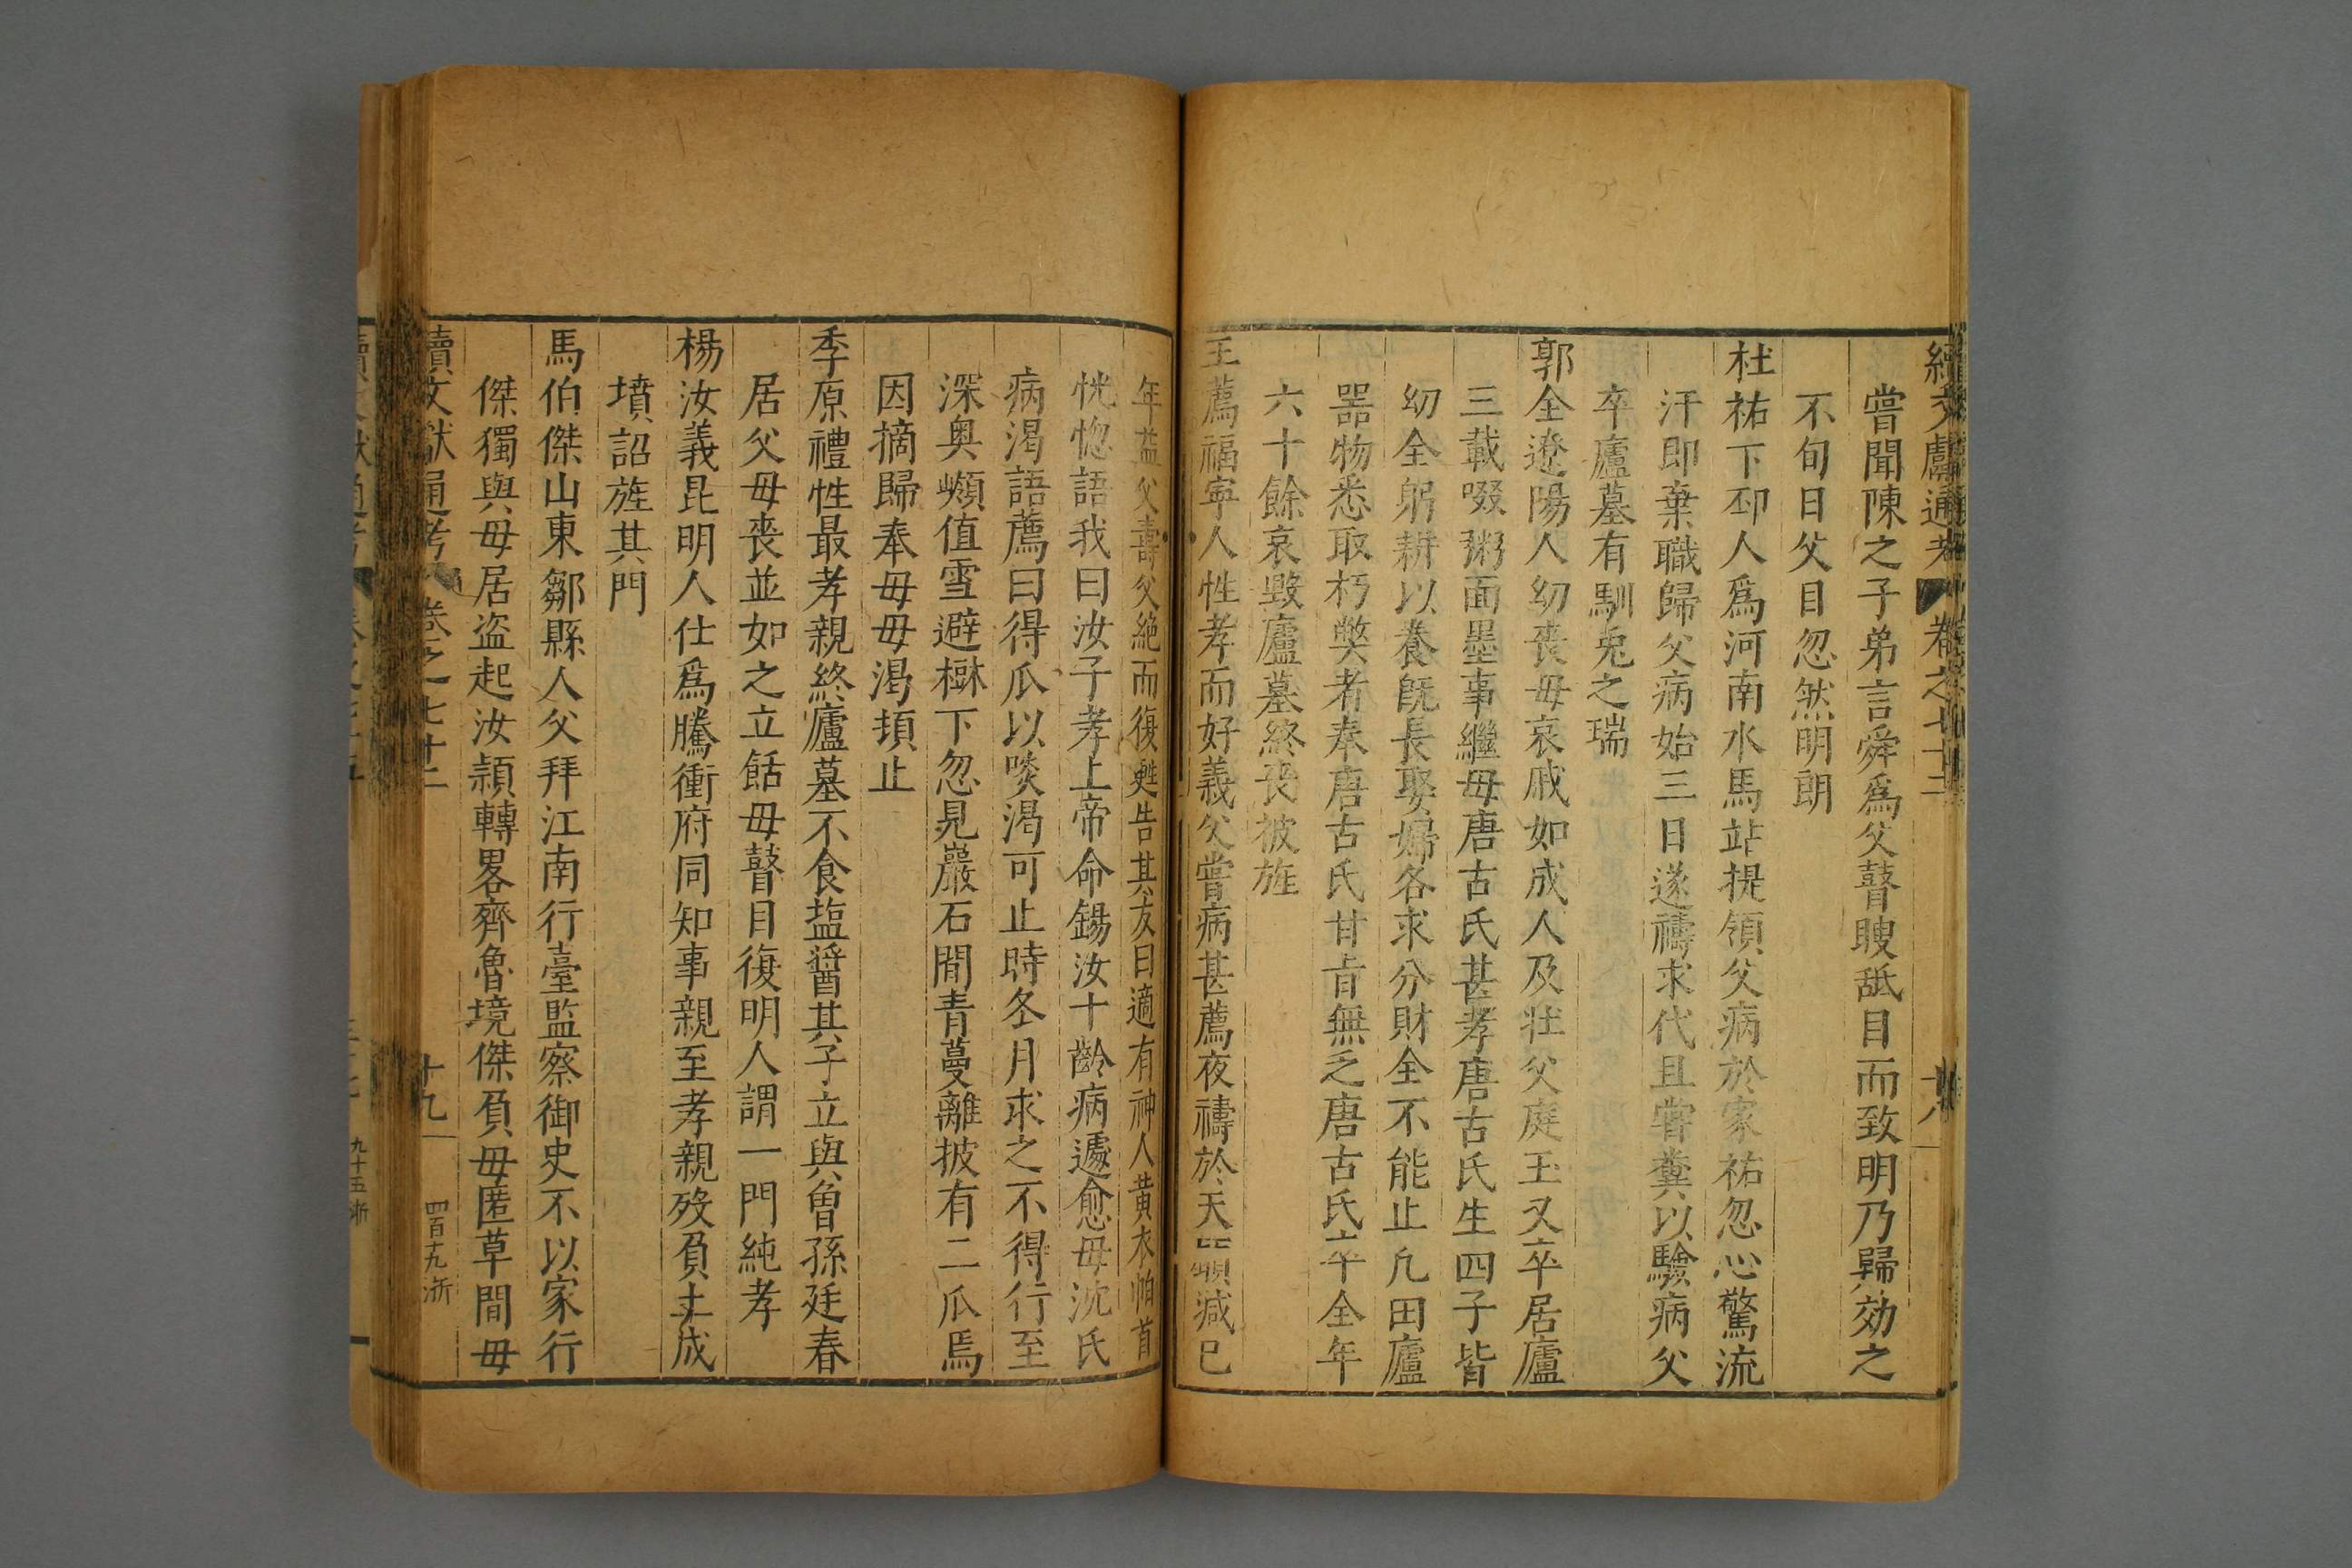 續文獻通考 卷之七十二 十八
嘗聞陳之子弟言舜爲父瞽瞍舐目而致明乃歸効之
不旬日父目忽然明朗
杜祐下邳人爲河南水馬站提領父病於家祐忽心驚流
汗即棄職歸父病始三日遂禱求代且嘗糞以驗病父
卒廬墓有馴兎之瑞
郭全遼陽人幼喪母哀戚如成人及壯父庭玉又卒居廬
三載啜粥面墨事繼母唐古氏甚孝唐古氏生四子皆
幼全躬耕以養旣長娶婦各求分財全不能止凡田廬
器物悉取朽弊者奉唐古氏甘旨無乏唐古氏卒全年
六十餘哀毀廬墓終喪被旌
王薦福寧人性孝而好義父嘗病甚薦夜禱於天願減已
年益父壽父絶而復甦告其友曰適有神人黃衣帕首
恍惚語我曰汝子孝上帝命錫汝十齡病遽愈母沈氏
病渴語薦曰得瓜以啖渴可止時冬月求之不得行至
深奥嶺值雪避樹下忽見巖石間青蔓離披有二瓜焉
因摘歸奉母母渴頓止
季原禮性最孝親終廬墓不食塩醬其子立與曾孫廷春
居父母喪並如之立餂母瞽目復明人謂一門純孝
楊汝義昆明人仕爲騰衝府同知事親至孝親歿負土成
墳詔旌其門
馬伯傑山東鄒縣人父拜江南行臺監察御史不以家行
傑獨與母居盗起汝潁轉畧齊魯境傑負母匿草間母
續文獻通考 卷之七十二 十九 四百九 浙
九十五浙